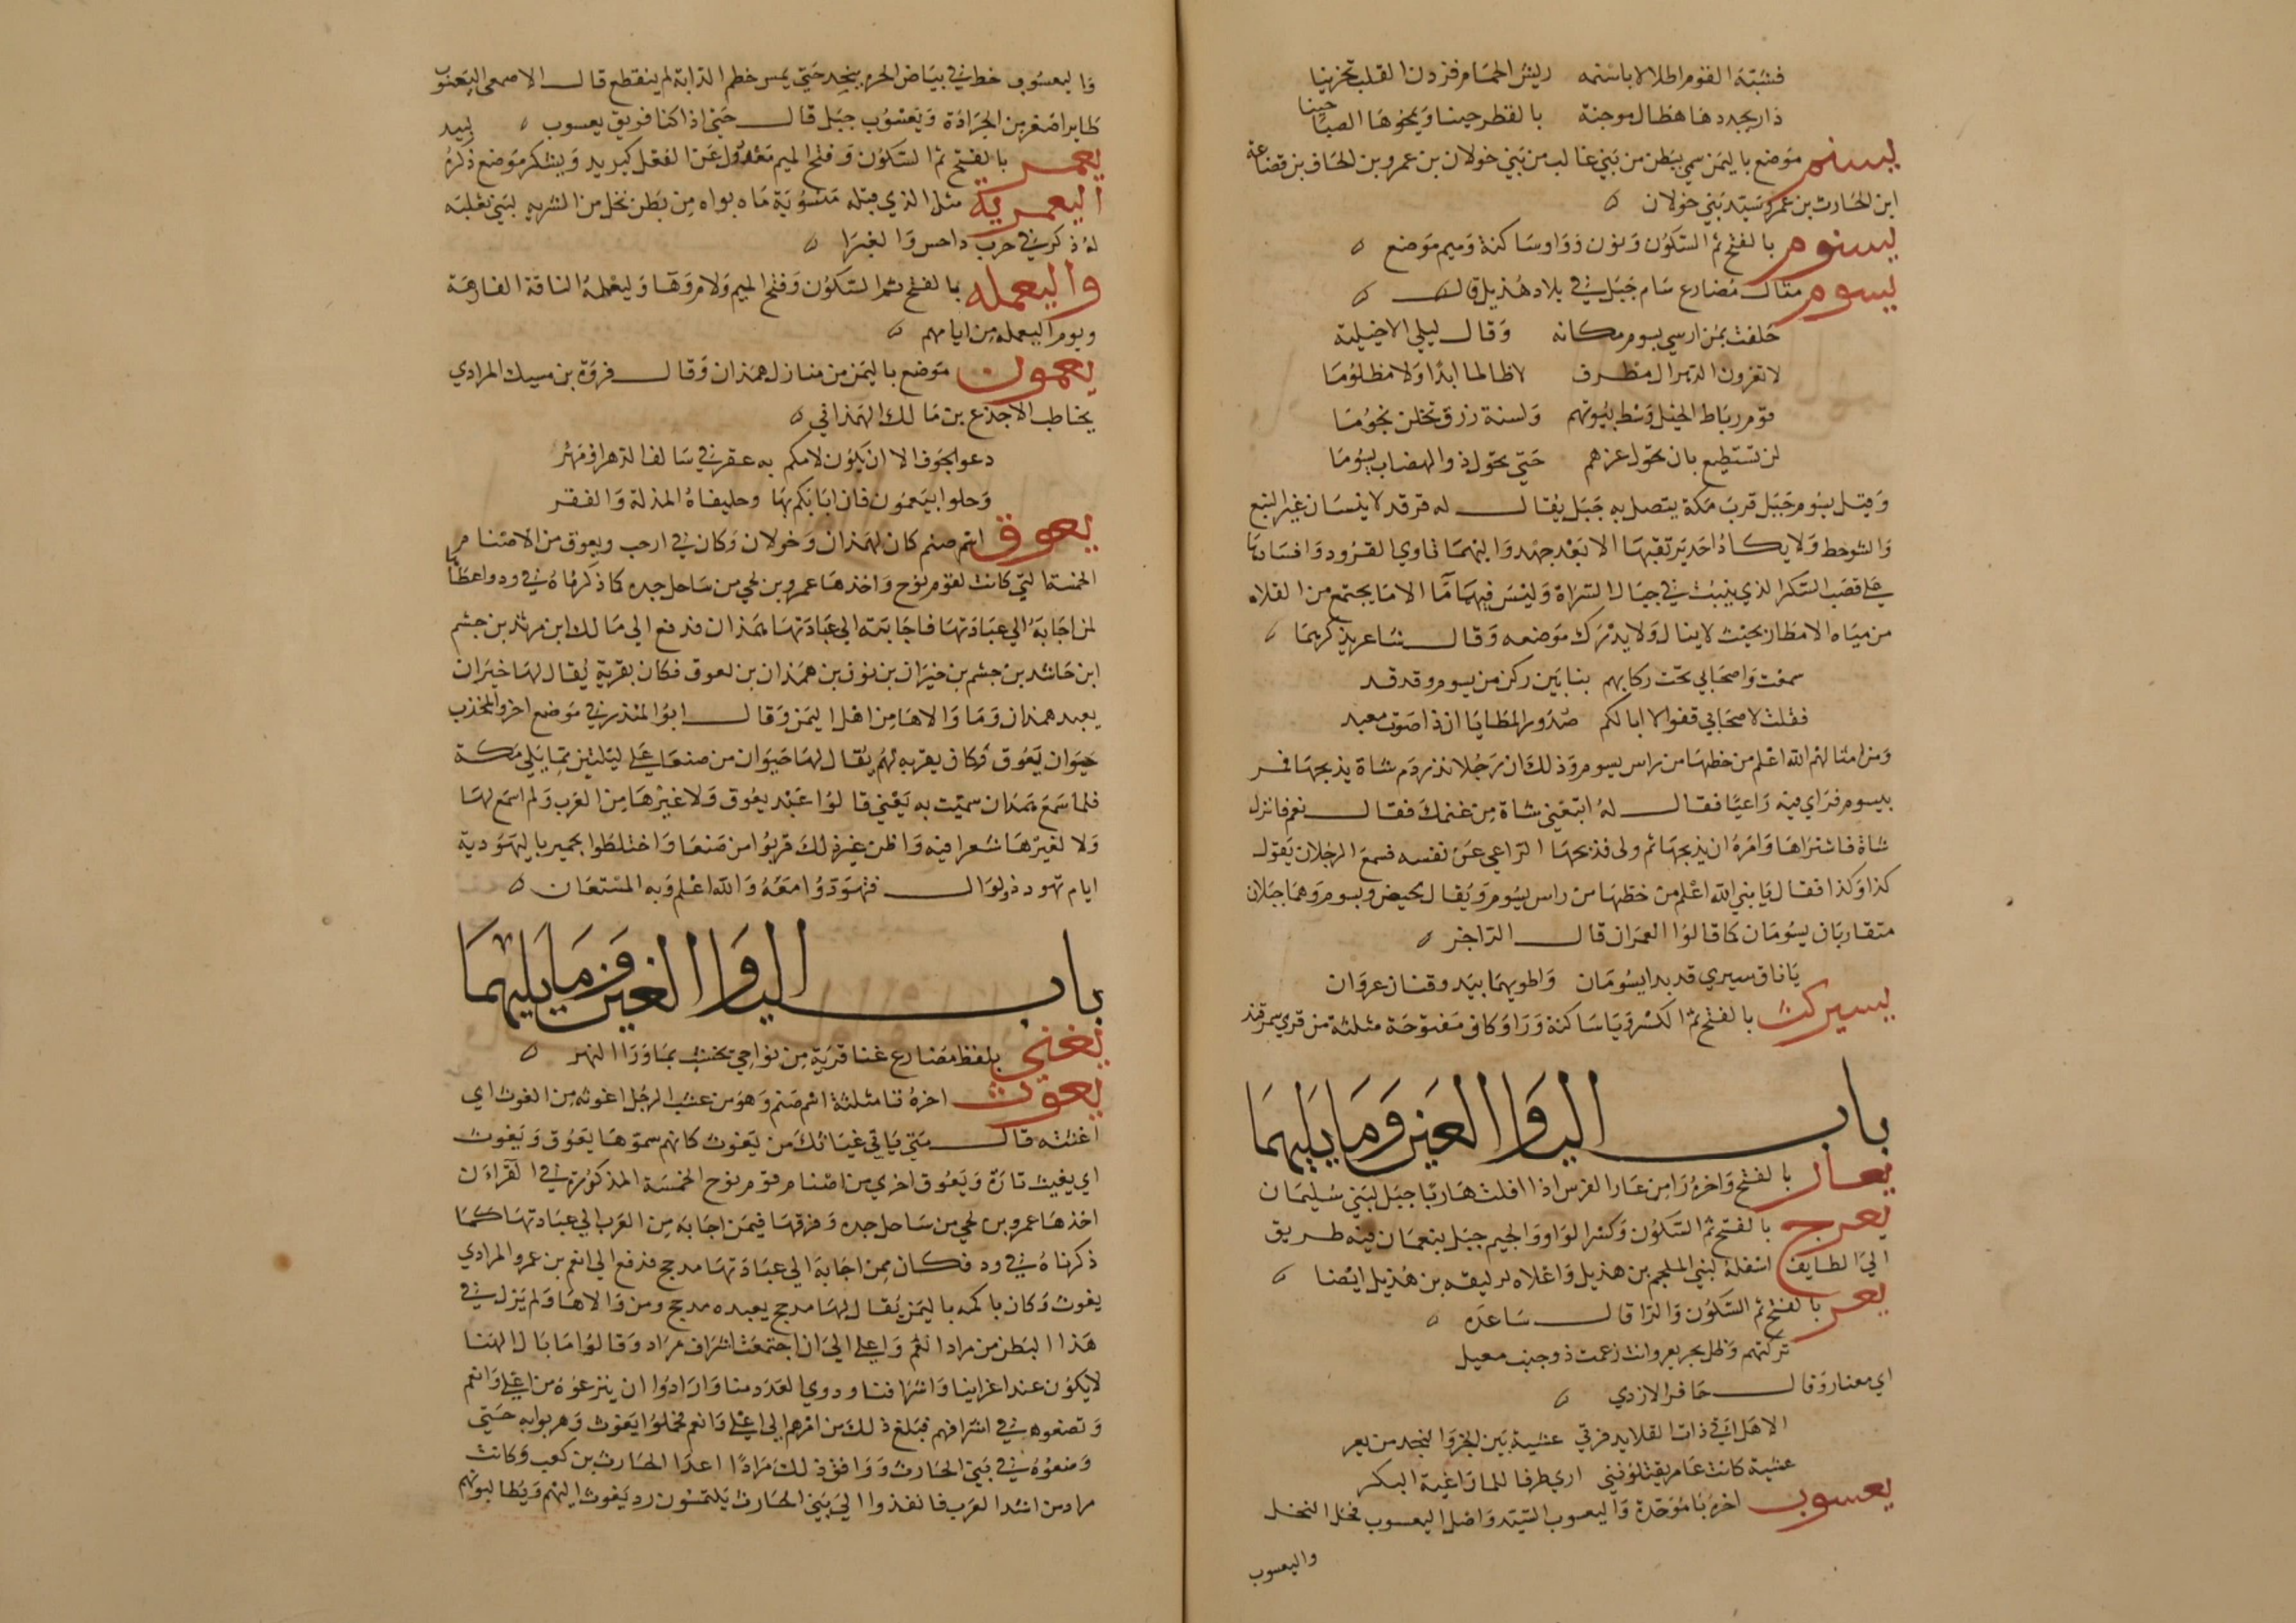 فشبه القوم اطلالا باسنمه ريش الحمام فزدن القلب تحزينا
دار يجددها هطال مدجنة بالقطر حينا ويمحوها الصبا حينا
يسنم موضع باليمن سمي ببطن من بني غالب من بني خولان بن عمرو بن الحاف بن قضاعة
ابن الحارث بن عمرو سيد بني خولان
يسنوم بالفتح ثم السكون ونون وواو ساكنة وميم موضع
يسوم مثال مضارع سام جبل في بلاد هذيل قال
حلفت بمن ارسي يسوم مكانه وقال ليلي الاخيلية
لا تغزون الدهر ال مطرف لا ظالما ابدا ولا مظلوما
قوم رباط الخيل وسط بيوتهم واسنة زرق تخلن نجوما
لن تستطيع بان تحول عزهم حتي تحول ذو الهضاب يسوما
وقيل يسوم جبل قرب مكة يتصل به جبل يقال له قرقد لا ينبتان غير النبع
والشوحط ولا يكاد احد يرتقيهما الا بعد جهد واليهما تاوي القرود وافسادها
علي قصب السكر الذي ينبت في جبال السراة وليس فيهما ما الا ما يجتمع من القلاة
من مياه الامطار بحيث لا ينال ولا يدرك موضعه وقال شاعر يذكرهما
سمعت واصحابي تحت ركابهم بنا بين ركن من يسوم وقدقد
فقلت لاصحابي قفوا لا ابا لكم صدور المطايا ان ذا صوت معبد
ومن امثالهم الله اعلم من حطها من راس يسوم وذلك ان رجلا نذر دم شاة يذبحها فمر
بيسوم فراي فيه راعيا فقال له ابتعني شاة من غنمك فقال نعم فانزل
شاة فاشتراها وامره ان يذبحها ثم ولى فذبحها الراعي عن نفسه فسمع الرجلان يقول
كذا وكذا فقال يا بني الله اعلم من حطها من راس يسوم ويقال يحيض ويسوم وهما جبلان
متقاربان يسومان كما قالوا العمران قال الراجز
يا ناق سيري قد بدا يسومان واطويهما بيد وقنان عروان
يسيركث بالفتح ثم الكسر ويا ساكنة ورا وكاف مفتوحة مثلثة من قري سمرقند
باب اليا والعين وما يليهما
يعار بالفتح واخره را من عار الفرس اذا افلت هاربا جبل لبني سليمان
يعرج بالفتح ثم السكون وكسر الواو والجيم جبل بنعمان فيه طريق
الي الطايف اسفله لبني الملجم بن هذيل واعلاه لزليفه بن هذيل ايضا
يعر بالفتح ثم السكون والرا قال ساعده
تركتهم وظل بجر يعر وانت زعمت ذو معيل
اي معنار وقال حافر الازدي
الا هل اتي ذات القلايد فرتي عشية بين الجر والنجد من يعر
عشية كانت عامر يقتلونني اري طرفا للما راغية البكر
يعسوب اخره با موحدة واليعسوب السيد واصل اليعسوب فحل النحل
واليعسوب
واليعسوب خط في بياض الحره ينحدر حتي يمس خطم الدابة ثم ينقطع قال الاصمعي اليعسوب
طاير اصغر من الجرادة ويعسوب جبل قال حتي اذا كنا فويق يعسوب لبيد
يعمر بالفتح ثم السكون وفتح الميم معدول عن الفعل كيزيد ويشكر موضع ذكره
اليعمرية مثل الذي قبله منسوبة ماه بواه من بطن نخل من الشربه لبني ثعلبه
له ذكر في حرب داحس والغبرا
واليعمله بالفتح ثم السكون وفتح الميم ولام وها واليعملة الناقة الفارهة
ويوم اليعمله من ايامهم
يعمون موضع باليمن من منازل همدان وقال فروة بن مسيك المرادي
يخاطب الاجدع بن مالك الهمداني
دعوا الجوف الا ان يكون لامكم به عقر في سالف الدهر او مهر
وحلوا بيعمون فان اباكم بها وحليفاه المذلة والفقر
يعوق اسم صنم كان لهمدان وخولان وكان في ارحب ويعوق من الاصنام
الخمسة التي كانت لقوم نوح واخذها عمرو بن لحي من ساحل جده كما ذكرناه في ود واعطاها
لمن اجابه الي عبادتها فاجابته الي عبادتها همدان فدفع الي مالك ابن مرثد بن جشم
ابن حاشد بن جشم بن خيران بن نوف بن همدان بن يعوق فكان بقرية يقال لها خيران
يعبده همدان وما والاها من اهل اليمن وقال ابو المنذر في موضع اخر واتخذت
خيوان يعوق وكان بقريه لهم يقال لها خيوان من صنعا علي ليلتين مما يلي مكة
فلم اسمع همدان سميت به يعني قالوا عبد يعوق ولا غيرها من العرب ولم اسمع لها
ولا لغيرها شعرا فيه واظن غير ذلك قربوا من صنعا واختلطوا بحمير باليهودية
ايام تهود ذو نواس فتهودوا معه والله اعلم وبه المستعان
باب اليا والغين وما يليهما
يغني بلفظ مضارع غنا قرية من نواحي نخشب بما ورا النهر
يغوث اخره ثا مثلثة اسم صنم وهو من غثت الرجل اغوثه من الغوث اي
اغثته قال متي ياتي غياثك من يغوث كانهم سموها يعوق ويغوث
اي يغيث تارة ويعوق اخري من اصنام قوم نوح الخمسة المذكورة في القراءن
اخذها عمرو بن لحي من ساحل جده وفرقها فيمن اجابه من العرب الي عبادتها كما
ذكرناه في ود فكان ممن اجابه الي عبادتها مذحج فدفع الي انعم بن عمرو المرادي
يغوث وكان باكمه باليمن يقال لها مذحج يعبده مذحج ومن والاها ولم يزل في
هذا البطن من مراد انعم واعلي الي ان اجتمعت اشراف مراد وقالوا ما بال الهنا
لا يكون عند اعزاينا واشرافنا وذوي العدد منا وارادوا ان ينزعوه من اعلي وانعم
وتضعوه في اشرافهم فبلغ ذلك من امرهم الي اعلي وانعم فحملوا يغوث وهربوا به حتي
وضعوه في بني الحارث ووافق ذلك مرادا اعدا الحارث بن كعب وكانت
مراد من اشد العرب فانفذوا الي بني الحارث يلتمسون رد يغوث اليهم ويطالبونهم